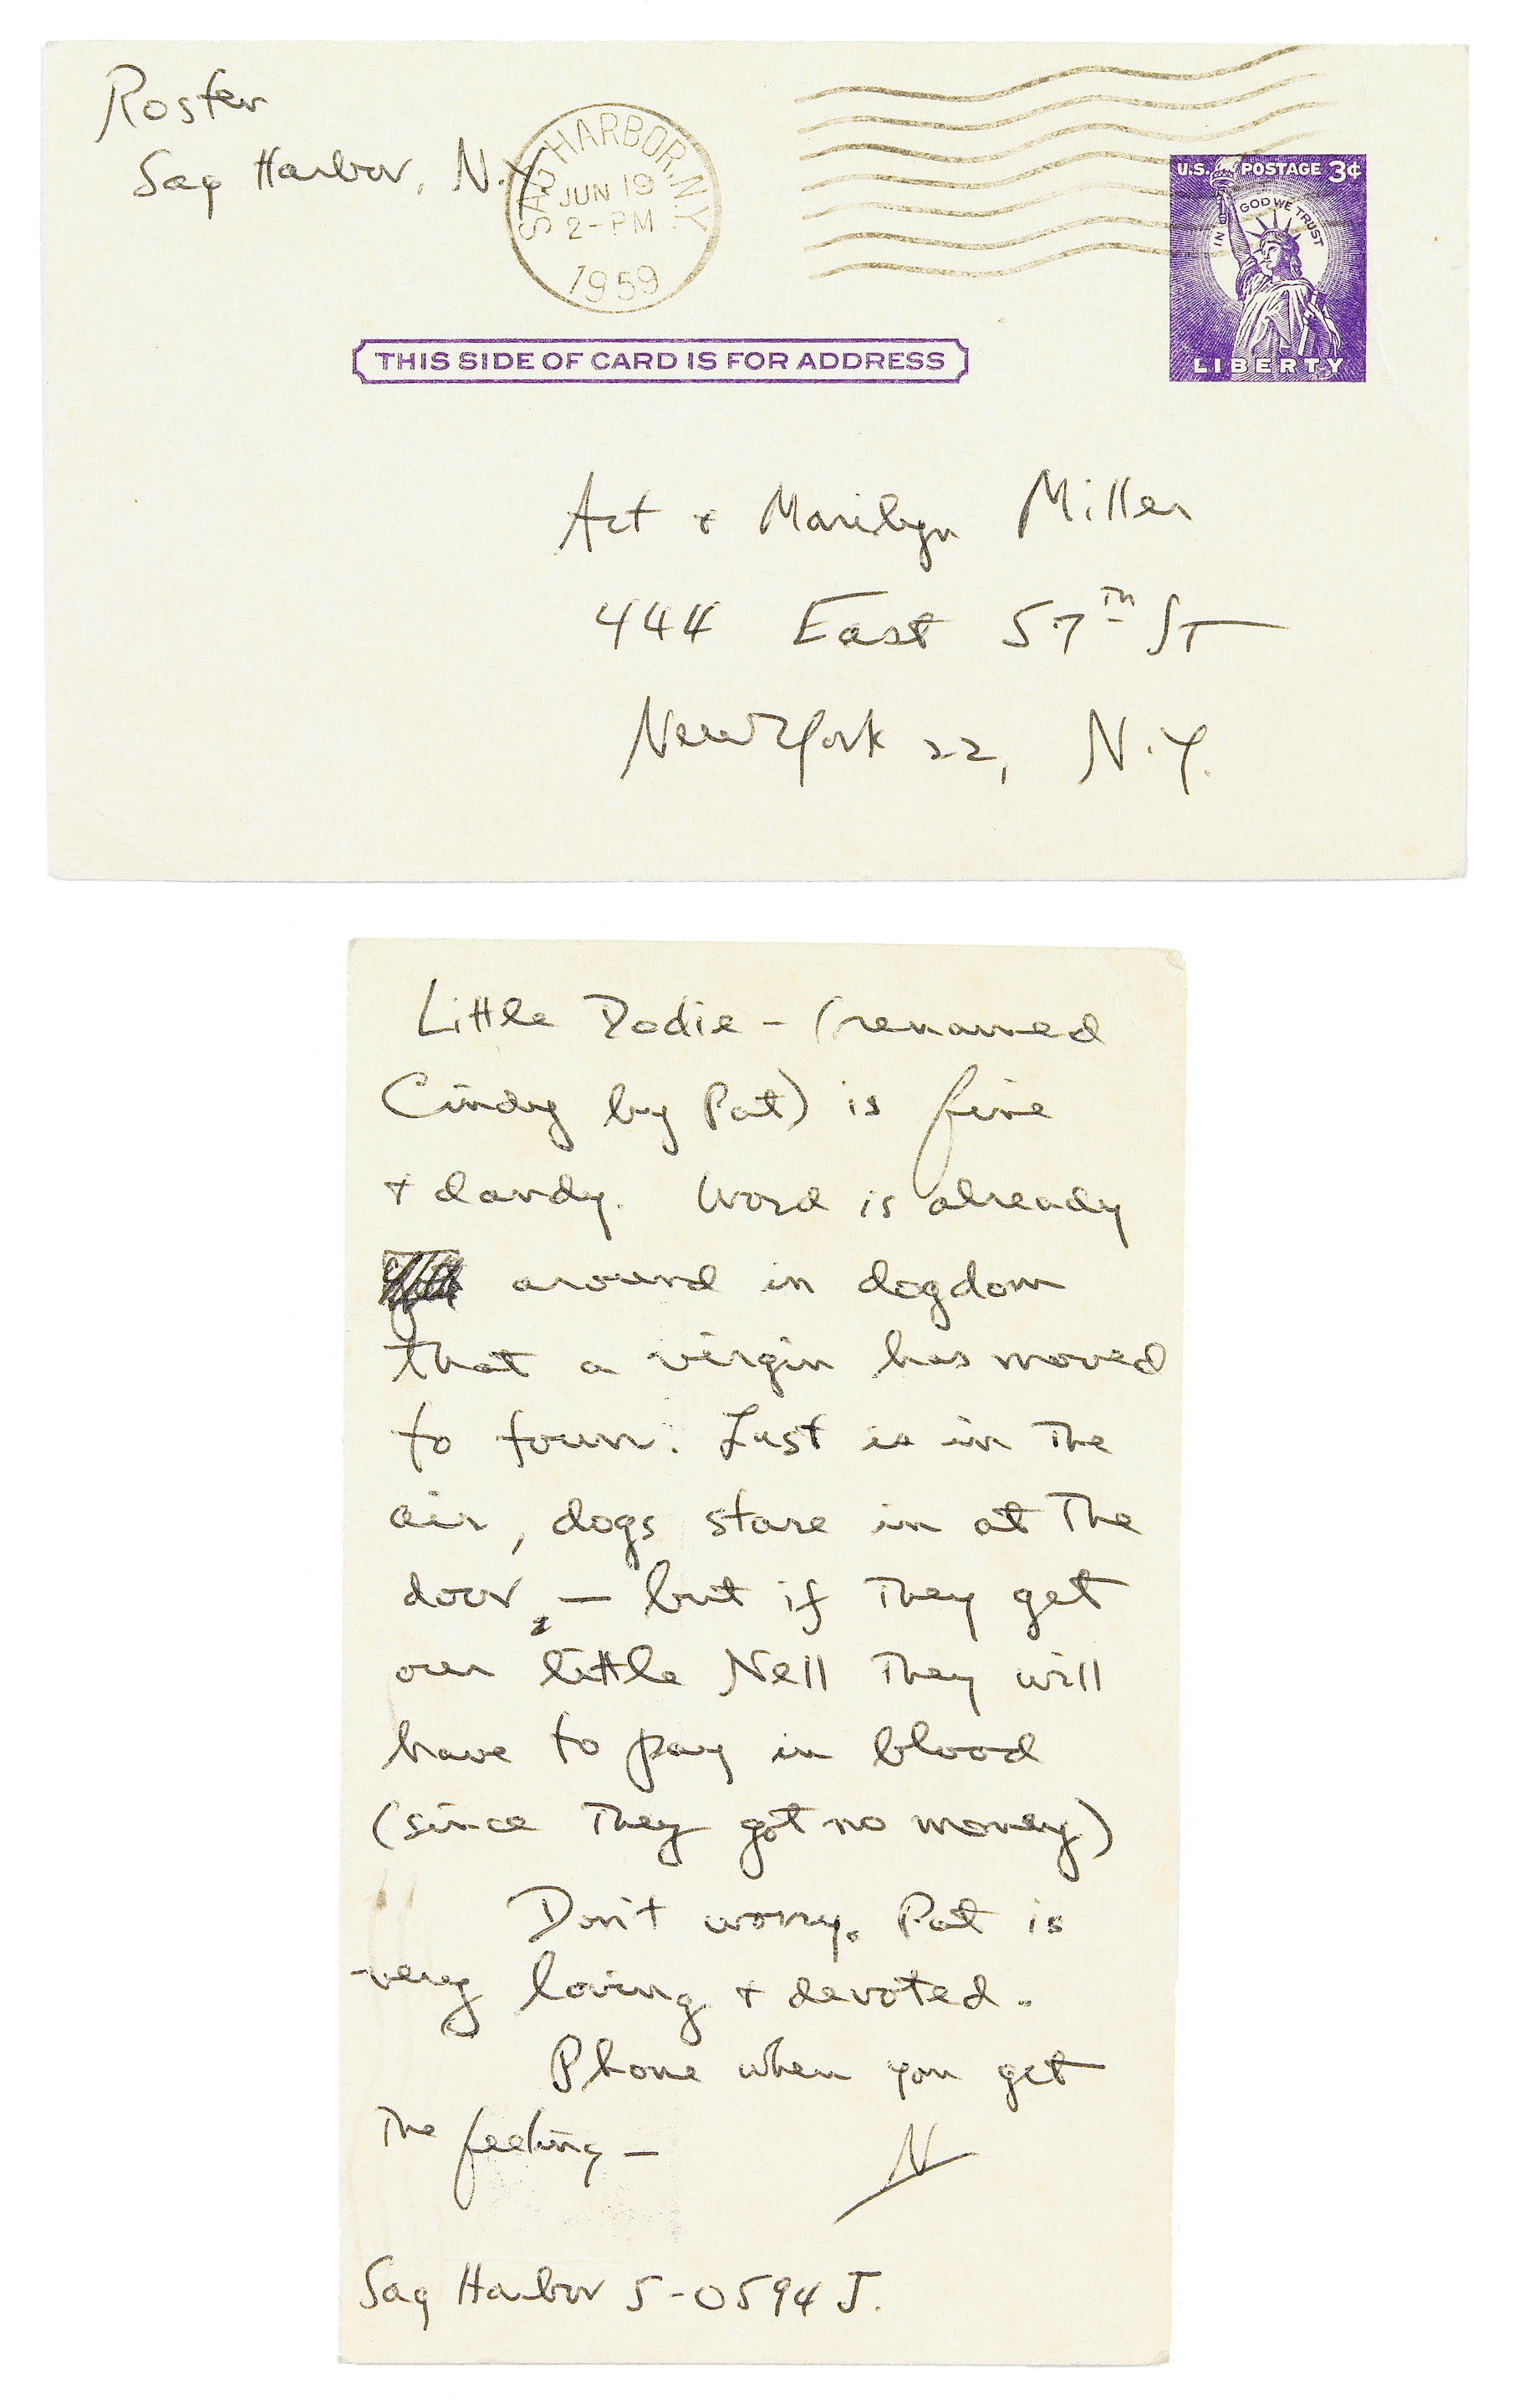 Rosten
Sag Harbor, N.Y
SAG HARBOR, N.Y.
JUN 19
2-PM
1959
U.S. POSTAGE 3¢
IN GOD WE TRUST
LIBERTY
THIS SIDE OF CARD IS FOR ADDRESS
Art + Marilyn Miller
444 East 57th ST
New York 22, N.Y.
Little Dodie - (renamed
Cindy by Pat) is fine
+ dandy. Word is already
around in dogdom
that a virgin has moved
to town. Lust is in The
air, dogs stare in at The
door, — but if They get
our little Nell They will
have to pay in blood
(since They got no money)
Don't worry. Pat is
very loving + devoted.
Phone when you get
The feeling —
N
Sag Harbor 5-0594 J.